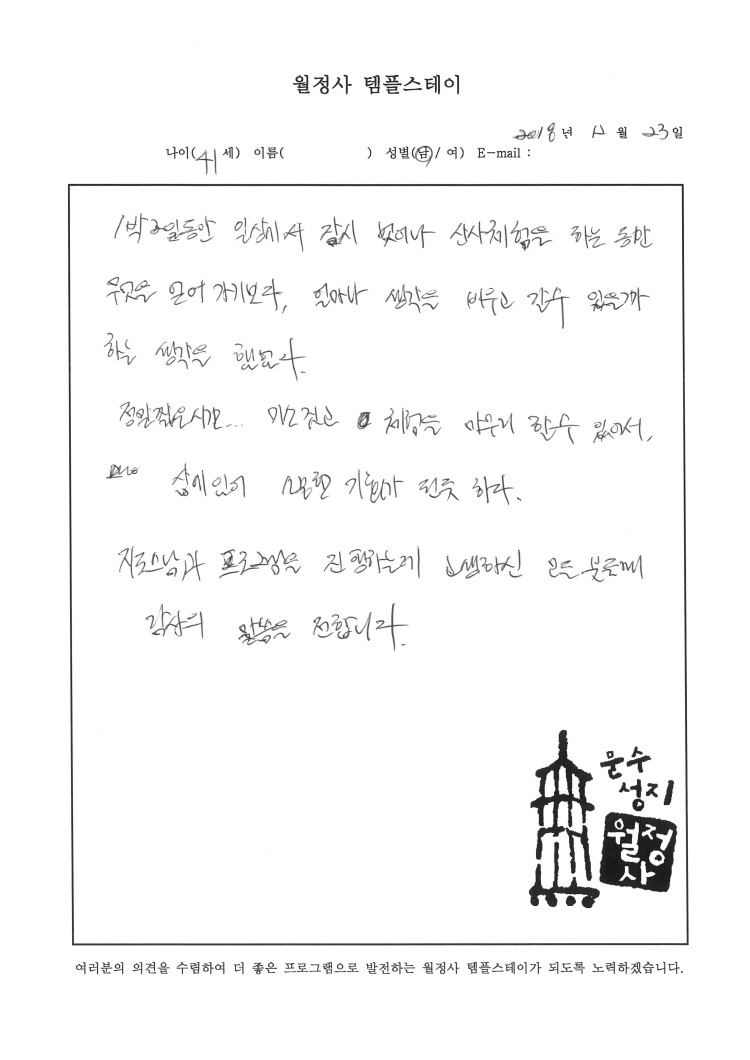 월정사 템플스테이
2018년 12월 23일
나이(41세) 이름( ) 성별(남/ 여) E-mail :
1박2일동안 일상에서 잠시 벗어나 산사체험을 하는 동안
무엇을 얻어 가기보다, 얼마나 생각을 비우고 갈수 있을까
하는 생각을 해본다.
정말짧은시간... 체험을 마무리 할수 있어서,
삶에있어 소중한 기회가 된듯 하다.
지도스님과 프로그램을 진행하는데 고생하신 모든 분들께
감사의 말씀을 전합니다.
문수
성지
월정
사
여러분의 의견을 수렴하여 더 좋은 프로그램으로 발전하는 월정사 템플스테이가 되도록 노력하겠습니다.